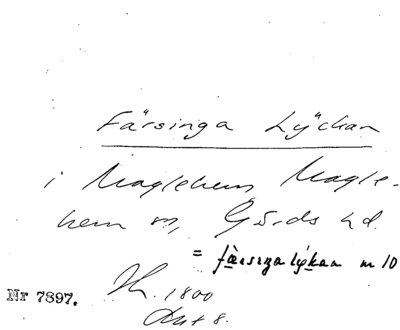 Färsinga Lyckan
i Maglehem, Magle-
hem sn, Gärds hd.
= färsiga lykan m 10
Nr 7897.
1800
Akt 8.